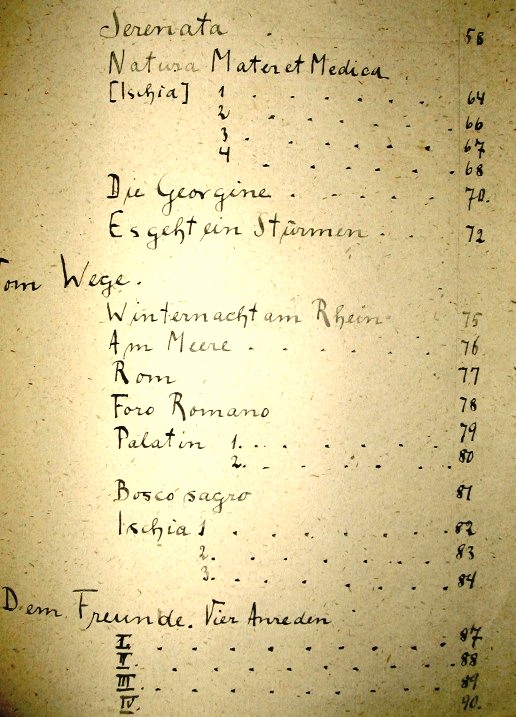 Serenata . 58
Natura Mater et Medica
[Ischia] 1 . . . . . 64
2 . . . . . 66
3 . . . . . 67
4 . . . . . 68
Die Georgine . . . . . 70.
Es geht ein Stürmen . . 72
Vom Wege.
Winternacht am Rhein 75
Am Meere . . . . . 76
Rom 77
Foro Romano 78
Palatin 1. . . . . . 79
2. . . . . . 80
Bosco sagro 81
Ischia 1 . . . . . 82
2. . . . . . 83
3. . . . . . 84
Dem Freunde. Vier Anreden
I. . . . . . 87
II . . . . . 88
III . . . . . 89
IV. 90.